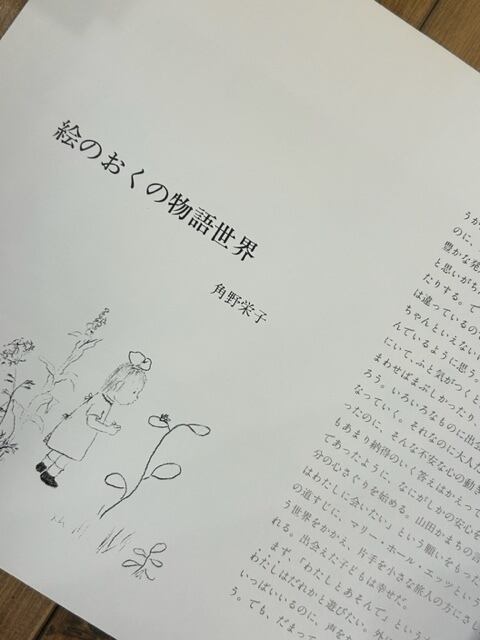 絵のおくの物語世界
角野栄子
うか
のに、
豊かな発
と思いがち
たりする。て
は違っているの
ちゃんといえない
んでいるように思う。
にいて、ふと気がつくと
まわせばまぶしかったり
ろう。いろいろなものに出会
なっていく。それなのに大人た
ったのに、そんな不安な心の動き
もあまり納得のいく答えはかえって
であったように、なにがしかの安心を
分の心さぐりを始める。山田かまちの言
はわたしに会いたい」という願いをもった
の道すじに、マリー・ホール・エッツという
う世界をかかえ、片手を小さな旅人の方にさと
れる。出会えた子どもは幸せだ。
まず、「わたしとあそんで」といっ
わたしはだれかと遊びたい。外な
いっぱいいるのに、声を
う。ても、だまって